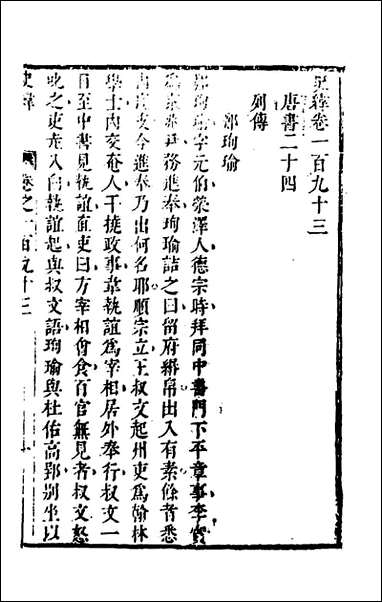 史緯卷一百九十三
唐書二十四
列傳
鄭珣瑜
鄭珣瑜字元伯滎澤人德宗時拜同中書門下平章事李實
為京兆尹務進奉珣瑜詰之曰留府緡帛出入有素餘者悉
內度支今進奉乃出何名耶順宗立王叔文起州吏為翰林
學士內交奄人干撓政事韋執誼為宰相居外奉行叔文一
日至中書見執誼直吏曰方宰相會食百官無見者叔文怒
叱之吏走入白執誼起與叔文語珣瑜與杜佑高郢別坐以
史緯 卷之一百九十三